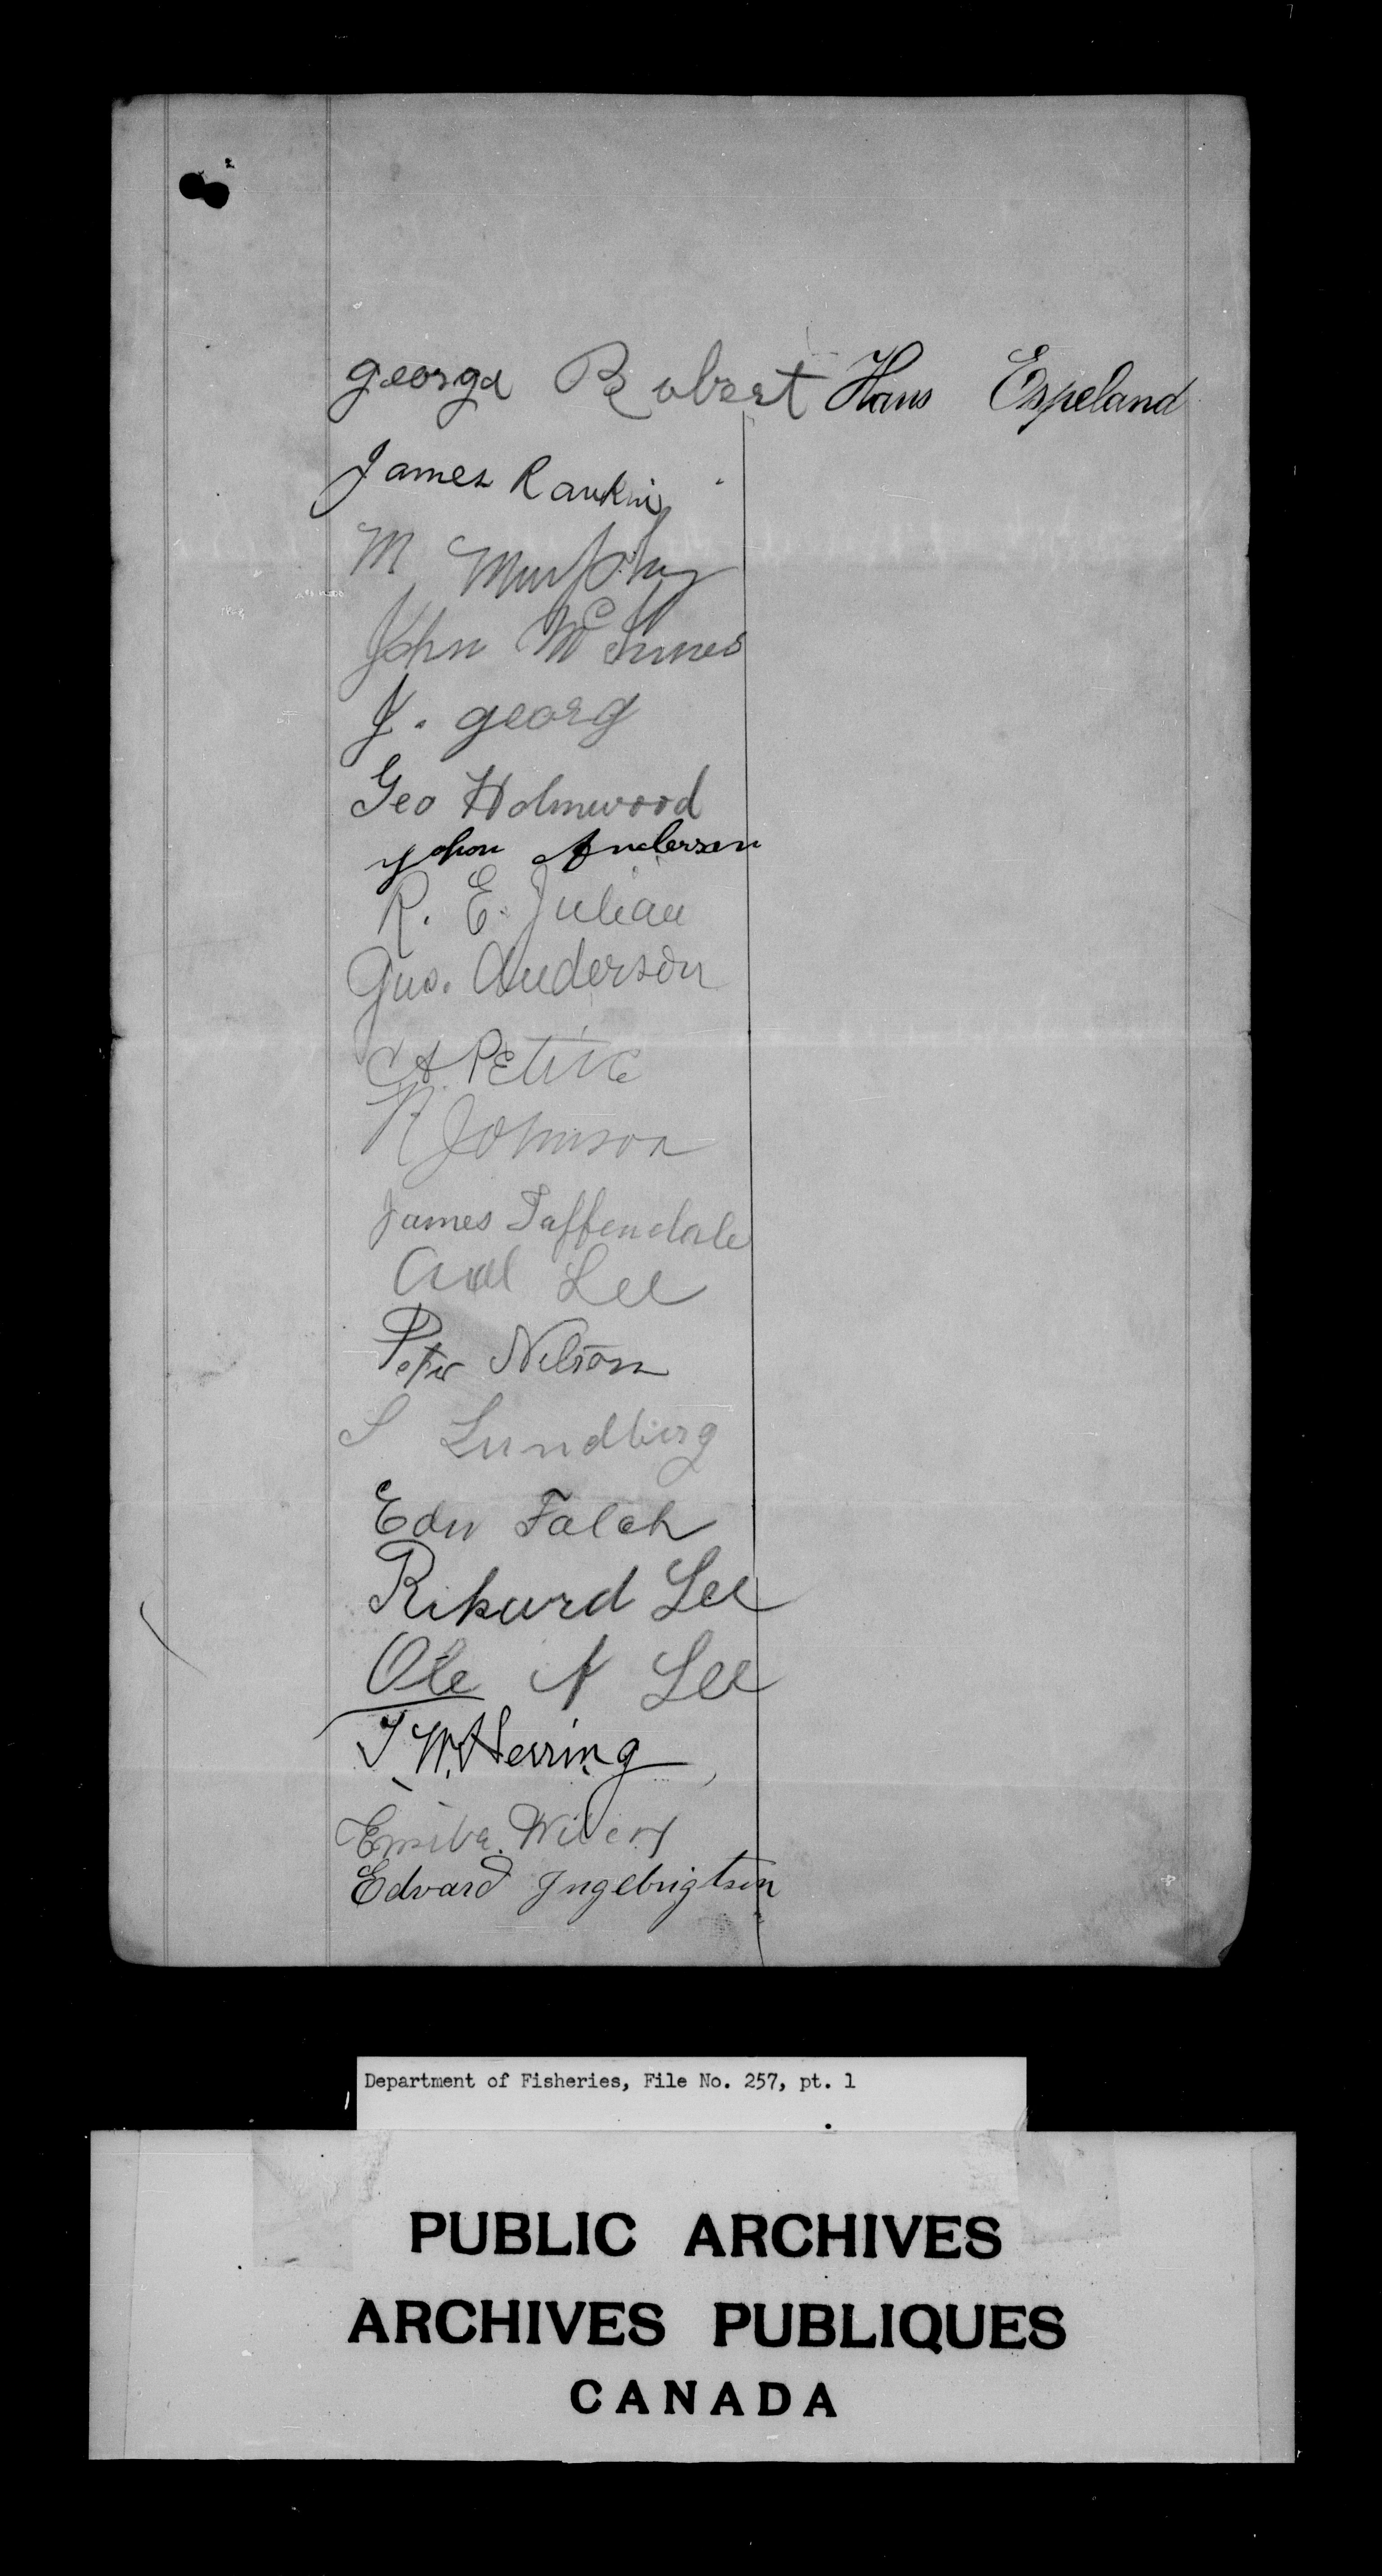 george Robert Hans Espeland
James Rankin
M Murphy
John McInnes
J. georg
Geo Holmwood
John Andersen
R. E. Julian
Gus. Anderson
A Petire
N Johnson
James Taffendale
Axel Lee
Peter Nelson
S Lundberg
Edw Falch
Rikard Lee
Ole N Lee
J W Herring
Edvard Ingebrigtsen
Department of Fisheries, File No. 257, pt. 1
PUBLIC ARCHIVES
ARCHIVES PUBLIQUES
CANADA